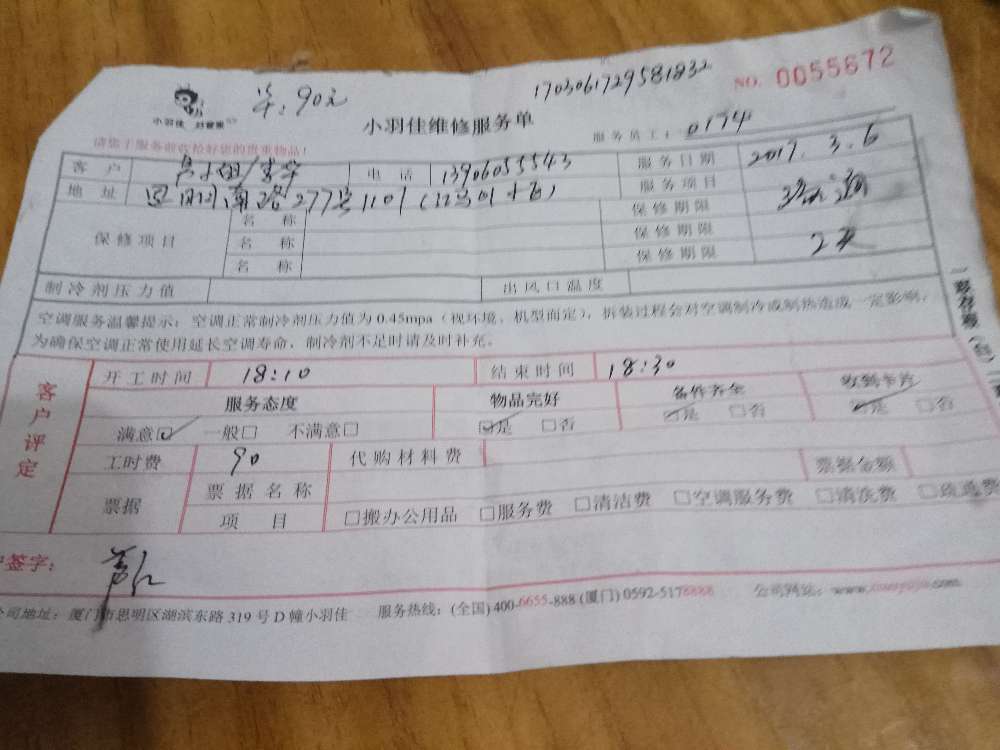 90元
170306172958 1832
NO. 0055672
小羽佳
小羽佳维修服务单
服务员工: 0174
请您于服务前收检好您的贵重物品!
客户 电话 13906055543 服务日期 2017.3.6
地址 277号1101 服务项目
保修项目 名称 保修期限
名称 保修期限 2天
名称 保修期限
制冷剂压力值 出风口温度
空调服务温馨提示: 空调正常制冷剂压力值为0.45mpa (视环境、机型而定), 拆装过程会对空调制冷或制热造成一定影响,
为确保空调正常使用延长空调寿命, 制冷剂不足时请及时补充。
客户评定
开工时间 18:10 结束时间 18:30
服务态度 物品完好 备件齐全 收到卡片
满意☑ 一般□ 不满意□ ☑是 □否 ☑是 □否 ☑是 □否
工时费 90 代购材料费
票据 票据名称 票据金额
项目 □搬办公用品 □服务费 □清洁费 □空调服务费 □清洗费 □疏通费
户签字:
公司地址: 厦门市思明区湖滨东路319号D幢小羽佳 服务热线: (全国) 400-6655-888 (厦门) 0592-5176888 公司网站: